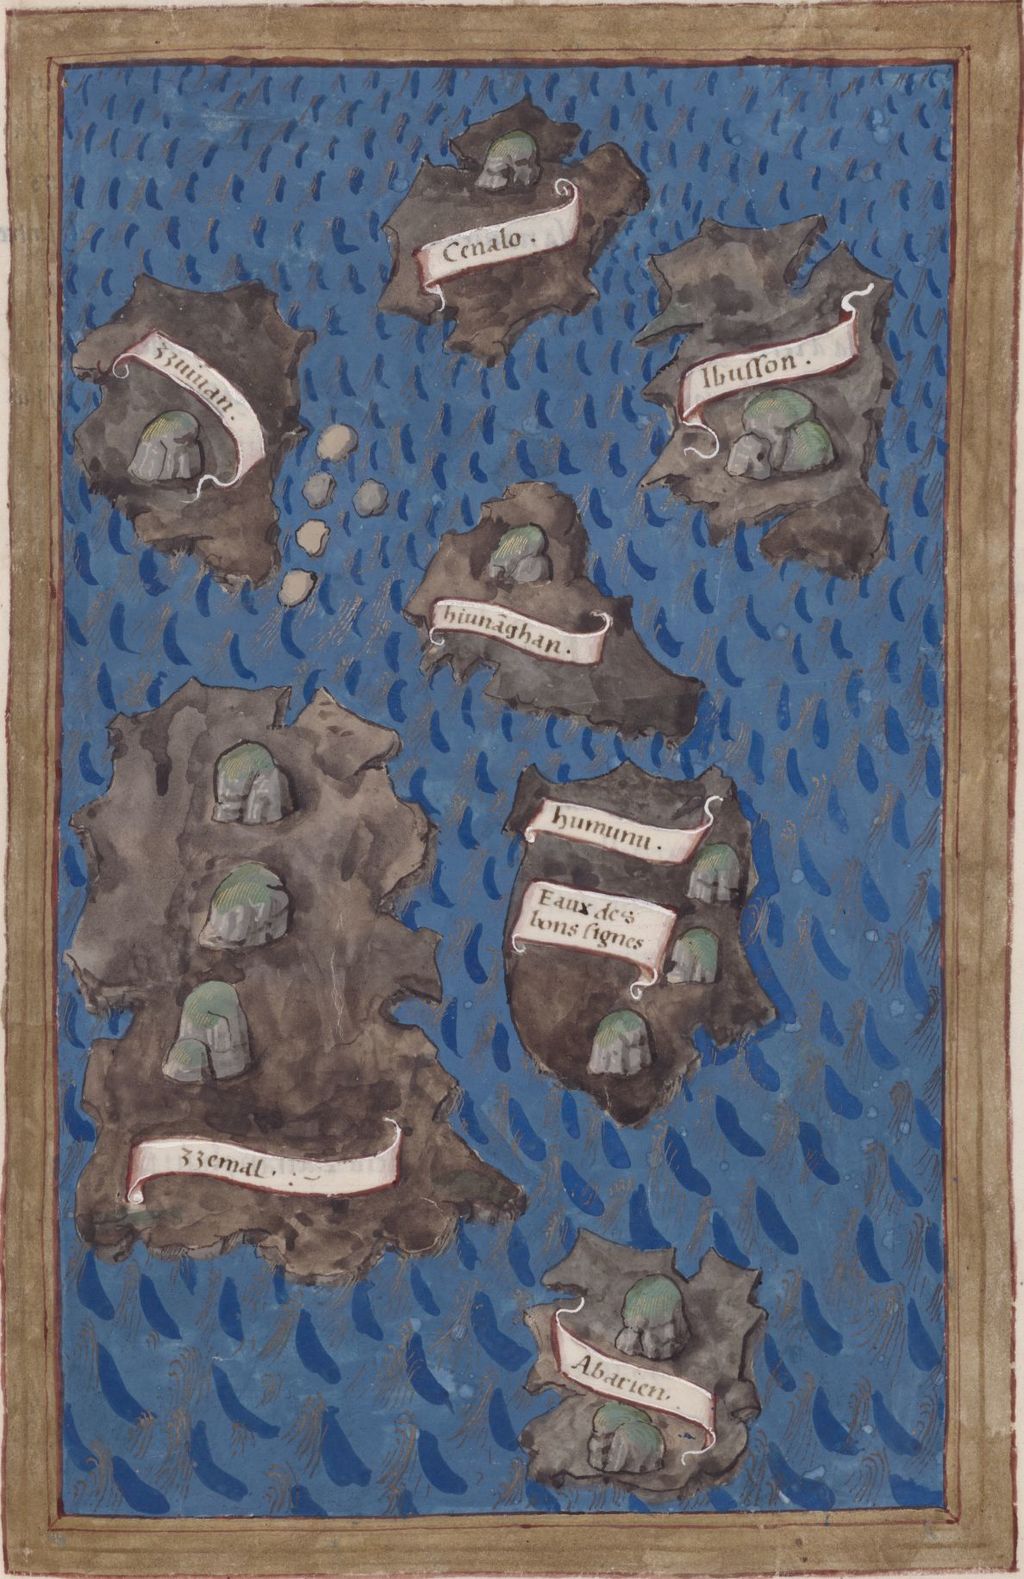 Cenalo.
Ibusson.
zzuiuan.
hiunāghan.
humunu.
Eaux des
bons signes
zzemal.
Abarien.